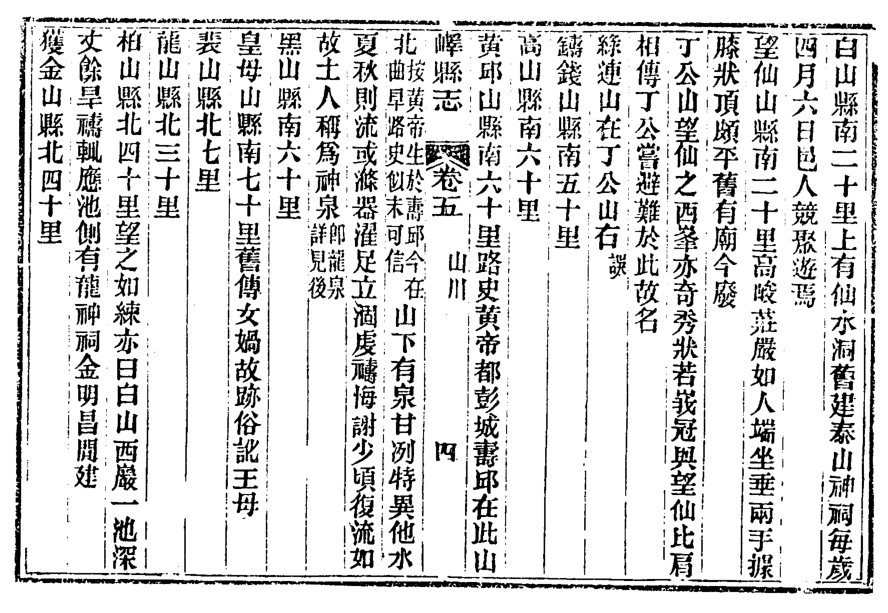 白山縣南二十里上有仙水洞舊建泰山神祠每歲
四月六日邑人競聚遊焉
望仙山縣南二十里高峻莊嚴如人端坐垂兩手據
膝狀頂頗平舊有廟今廢
丁公山望仙之西峯亦奇秀狀若峩冠與望仙比肩
相傳丁公嘗避難於此故名
絲連山在丁公山右誤
鑄錢山縣南五十里
高山縣南六十里
黄邱山縣南六十里路史黄帝都彭城壽邱在此山
嶧縣志 卷五 山川 四
北按黄帝生於壽邱今在曲阜路史似未可信山下有泉甘冽特異他水
夏秋則流或滌器濯足立涸虔禱悔謝少頃復流如
故土人稱爲神泉卽龍泉詳見後
黑山縣南六十里
皇母山縣南七十里舊傳女媧故跡俗訛王母
裴山縣北七里
龍山縣北三十里
柏山縣北四十里望之如練亦曰白山西巖一池深
丈餘旱禱輒應池側有龍神祠金明昌閒建
獲金山縣北四十里